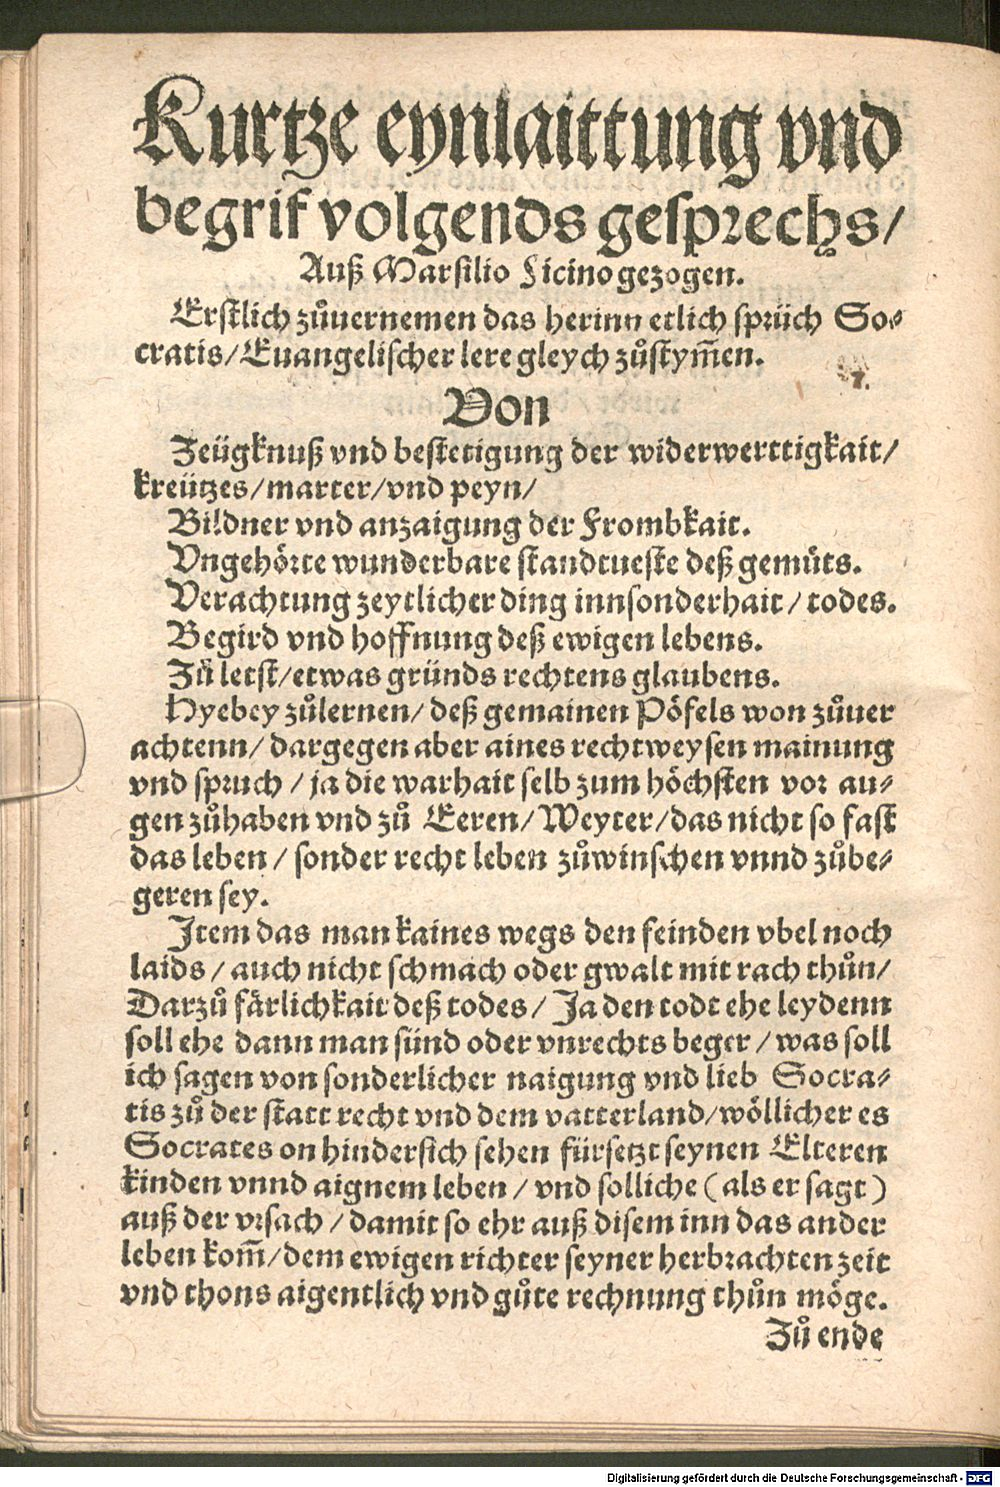 Kurtze eynlaittung vnd
begrif volgends gesprechs/
Auß Marsilio Ficino gezogen.
Erstlich zůuernemen das herinn etlich sprüch So-
cratis/Euangelischer lere gleych zůstym̃en.
Von
Zeügknuß vnd bestetigung der widerwerttigkait/
kreützes/marter/vnd peyn/
Bildner vnd anzaigung der Frombkait.
Vngehörte wunderbare standtueste deß gemüts.
Verachtung zeytlicher ding innsonderhait/todes.
Begird vnd hoffnung deß ewigen lebens.
Zů letst/etwas gründs rechtens glaubens.
Hyebey zůlernen/deß gemainen Pöfels won zůuer
achtenn/dargegen aber aines rechtweysen mainung
vnd spruch/ja die warhait selb zum höchsten vor au-
gen zůhaben vnd zů Eeren/Weyter/das nicht so fast
das leben/sonder recht leben zůwinschen vnnd zůbe-
geren sey.
Item das man kaines wegs den feinden vbel noch
laids/auch nicht schmach oder gwalt mit rach thůn/
Darzů färlichkait deß todes/Ja den todt ehe leydenn
soll ehe dann man sünd oder vnrechts beger/was soll
ich sagen von sonderlicher naigung vnd lieb Socra-
tis zů der statt recht vnd dem vatterland/wöllicher es
Socrates on hindersich sehen fürsetzt seynen Elteren
kinden vnnd aignem leben/vnd solliche (als er sagt)
auß der vrsach/damit so ehr auß disem inn das ander
leben kom̃/dem ewigen richter seyner herbrachten zeit
vnd thons aigentlich vnd gůte rechnung thůn möge.
Zů ende
Digitalisierung gefördert durch die Deutsche Forschungsgemeinschaft - DFG